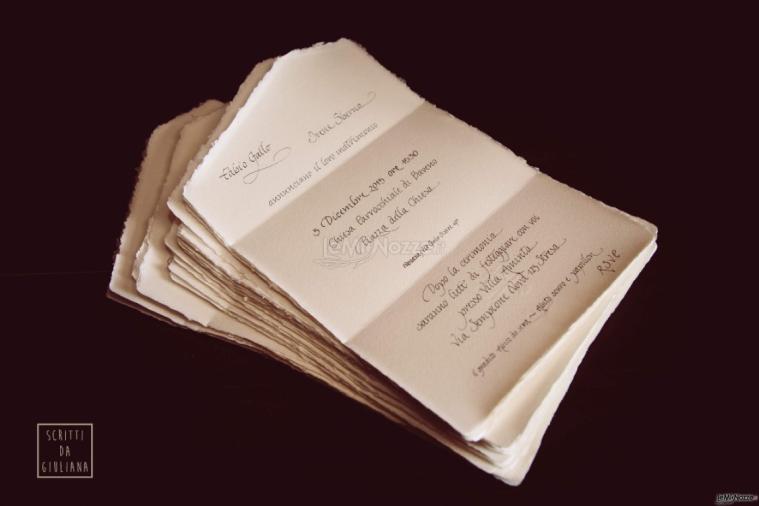 Fabio Gallo
annunciano il loro matrimonio
5 Dicembre 2015 ore 1630
Chiesa Parrocchiale di Baveno
Piazza della Chiesa
LeMieNozze.it
Dopo la cerimonia
saranno lieti di festeggiare con voi
presso Villa Aminta
Via Sempione Nord 123 Stresa
RSVP
SCRITTI
DA
GIULIANA
LeMieNozze.it